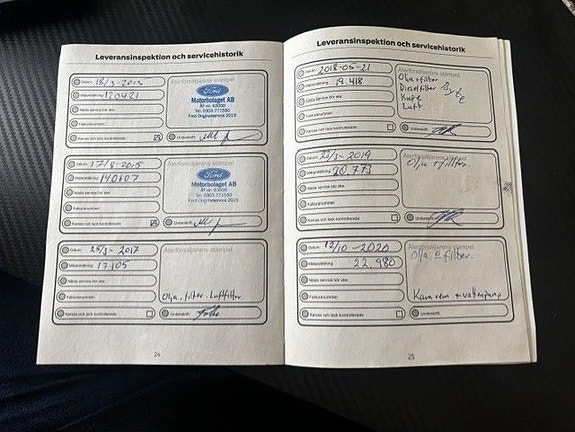 Leveransinspektion och servicehistorik
Datum: 18/3-2015
Mätarställning: 120421
Nästa service bör ske:
Fakturanummer:
Kaross och lack kontrollerade
Återförsäljarens stämpel
Ford
Motorbolaget AB
Ford Originalservice 2015
Underskrift:
Datum: 17/8-2015
Mätarställning: 140107
Nästa service bör ske:
Fakturanummer:
Kaross och lack kontrollerade
Återförsäljarens stämpel
Ford
Motorbolaget AB
Ford Originalservice 2015
Underskrift:
Datum: 25/3-2017
Mätarställning: 17105
Nästa service bör ske:
Fakturanummer:
Kaross och lack kontrollerade
Återförsäljarens stämpel
Olja. filter. Luftfilter.
Underskrift:
24
Leveransinspektion och servicehistorik
Datum: 2018-05-21
Mätarställning: 19.418
Nästa service bör ske:
Fakturanummer:
Kaross och lack kontrollerade
Återförsäljarens stämpel
Olja+filter
Dieselfilter
Kupé
Luft
Underskrift:
Mätarställning: 20.773
Nästa service bör ske:
Fakturanummer:
Kaross och lack kontrollerade
Återförsäljarens stämpel
Olja +filter.
Underskrift:
Datum: 13/10-2020
Mätarställning: 22.980
Nästa service bör ske:
Fakturanummer:
Kaross och lack kontrollerade
Återförsäljarens stämpel
Olja & filter.
Kamrem + vattenpump
Underskrift:
25